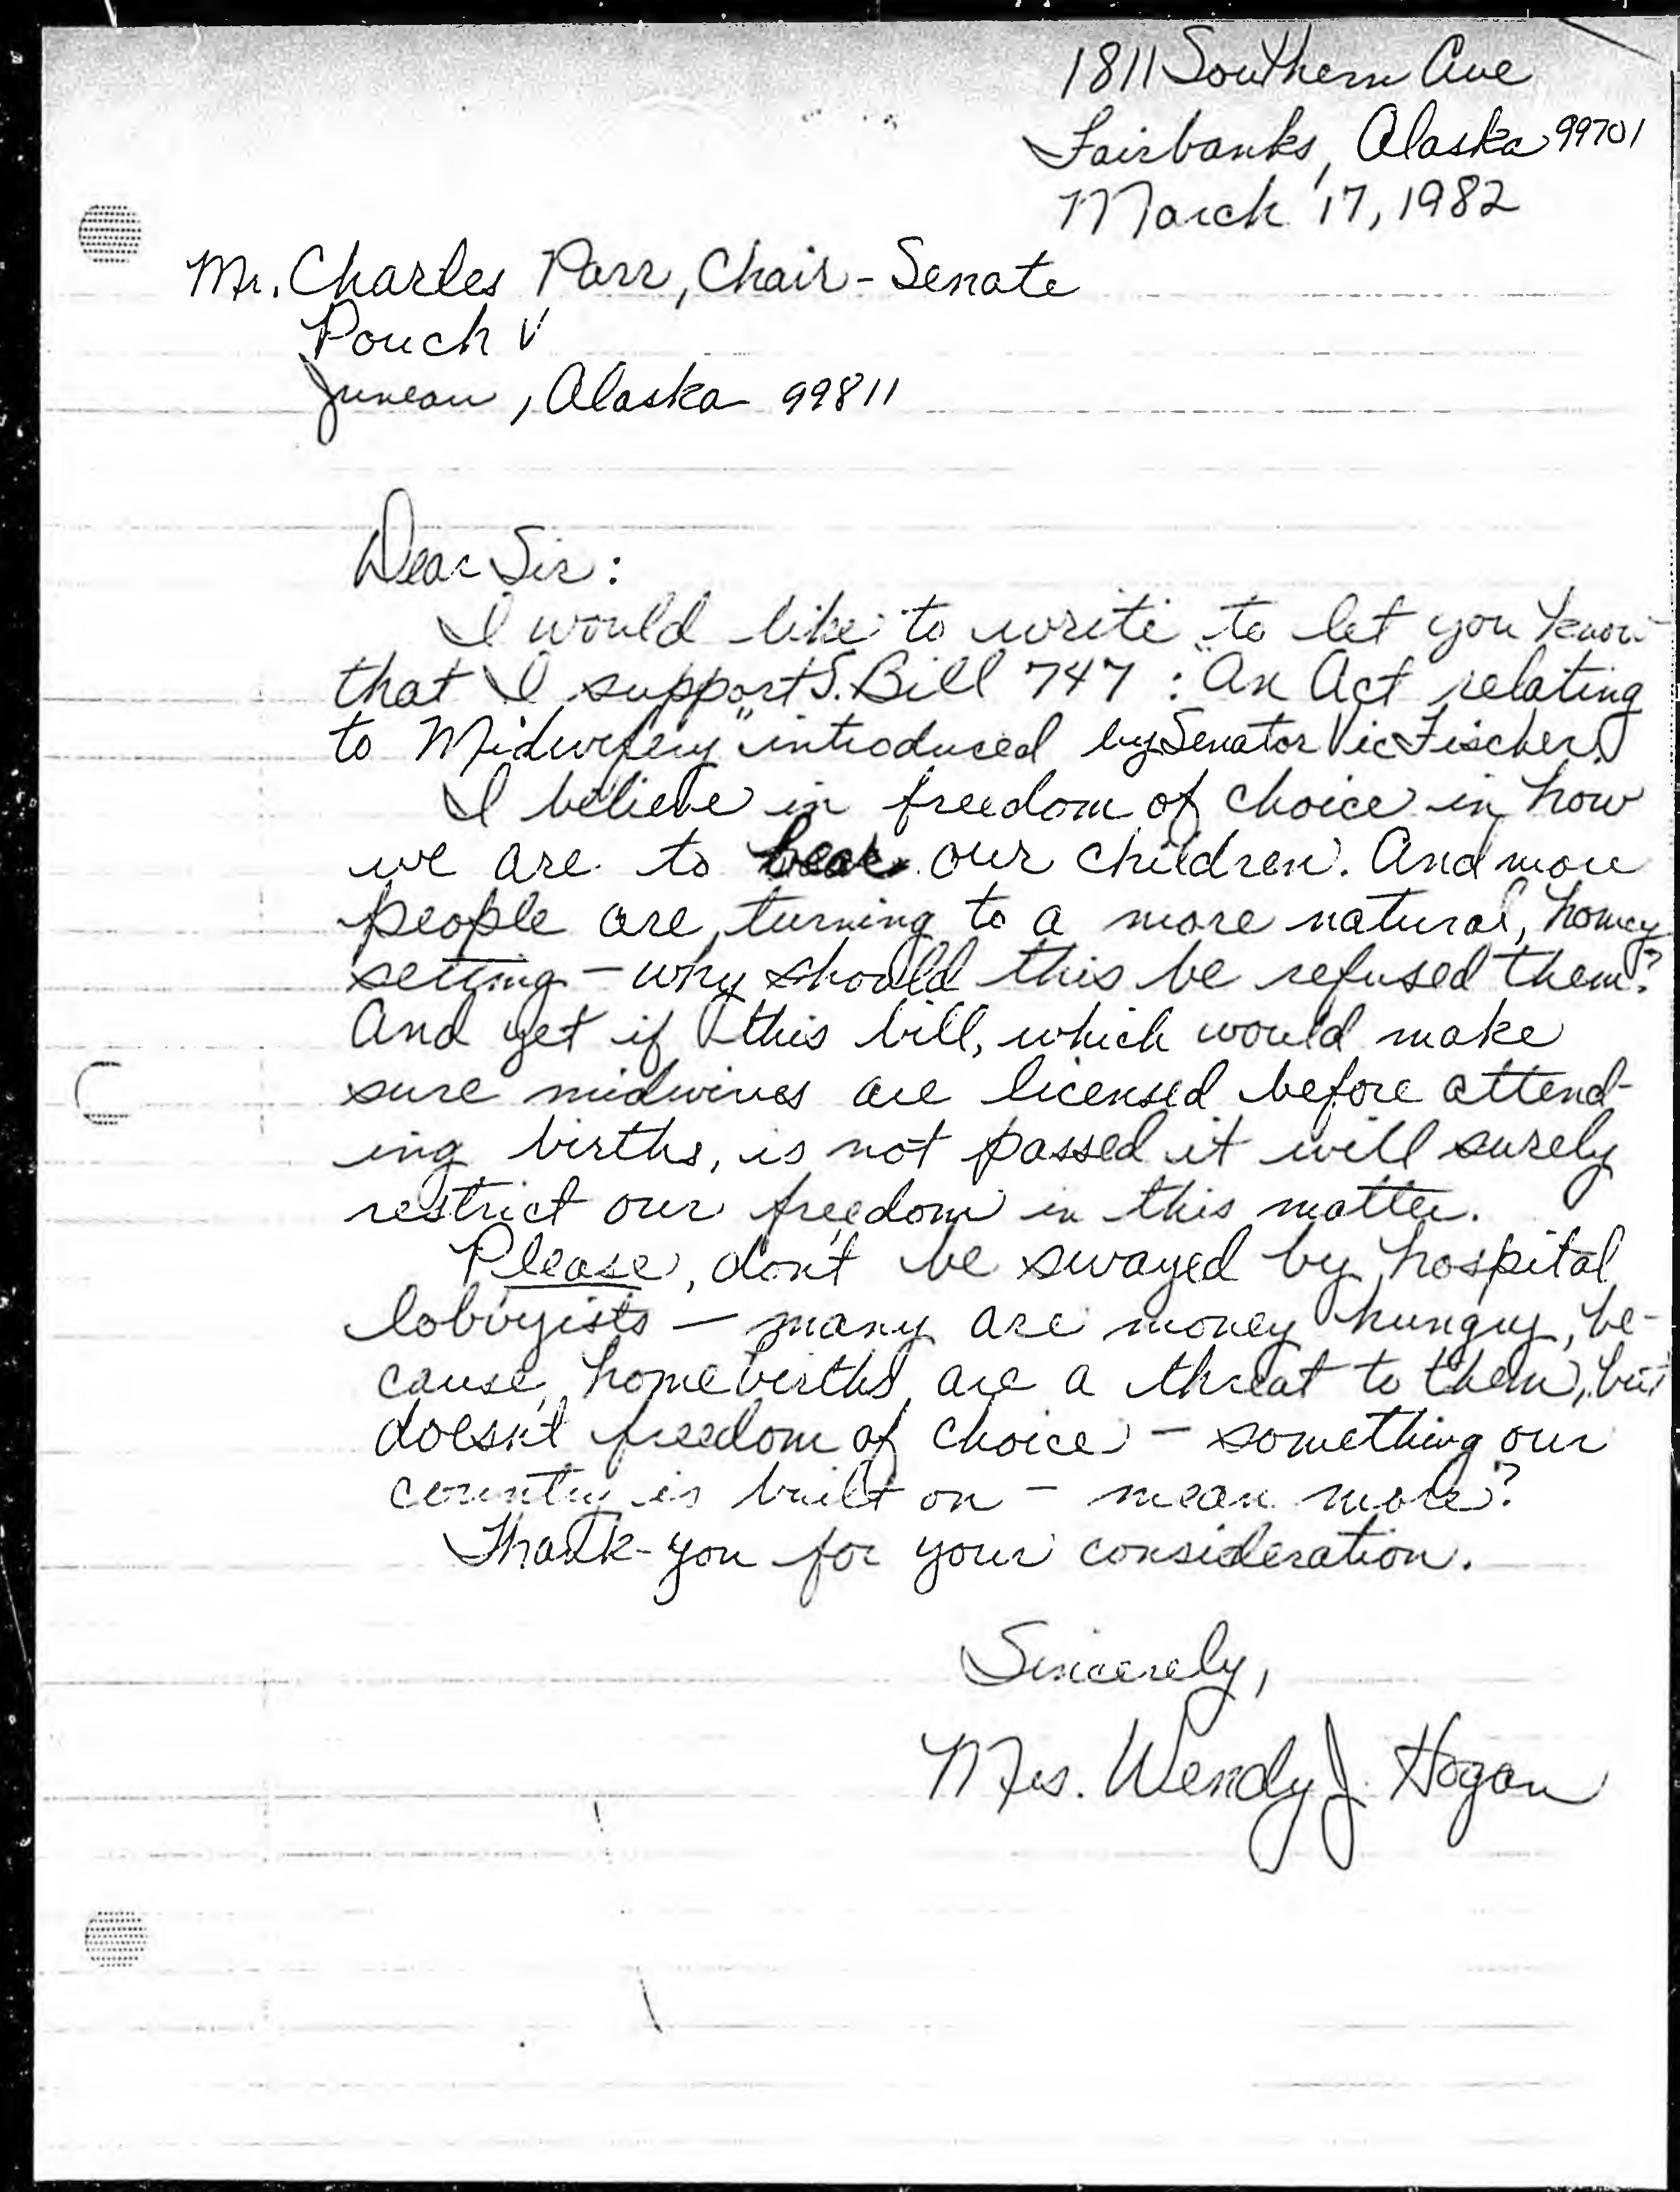 1811 Southern Ave
Fairbanks, Alaska 99701
March 17, 1982
Mr. Charles Parr, Chair - Senate
Pouch V
Juneau, Alaska 99811
Dear Sir:
I would like to write to let you know
that I support S. Bill 747 : "An Act relating
to Midwifery" introduced by Senator Vic Fischer.
I believe in freedom of choice in how
we are to bear our children. And more
people are turning to a more natural, homey
setting - why should this be refused them?
And yet if this bill, which would make
sure midwives are licensed before attend-
ing births, is not passed it will surely
restrict our freedom in this matter.
Please, don't be swayed by hospital
lobbyists - many are money hungry, be-
cause homebirths are a threat to them, but
doesn't freedom of choice - something our
country is built on - mean more?
Thank-you for your consideration.
Sincerely,
Mrs. Wendy J. Hogan